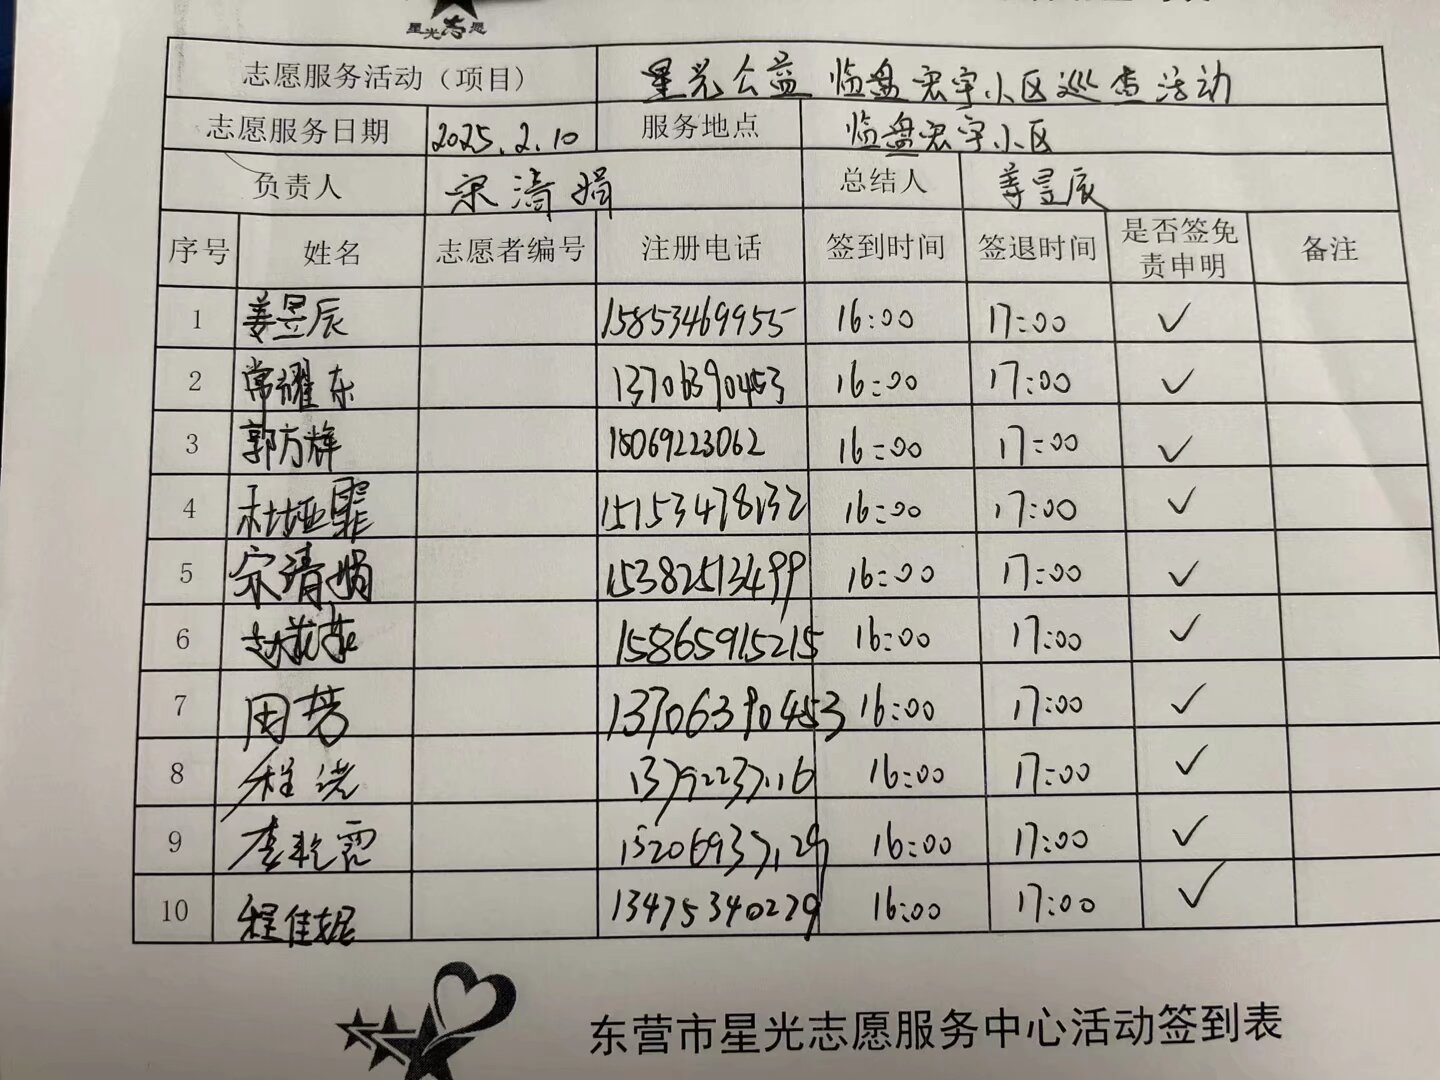 星光志愿
志愿服务活动（项目） 星光公益临盘宏宇小区巡查活动
志愿服务日期 2025.2.10 服务地点 临盘宏宇小区
负责人 宋清娟 总结人 姜昱辰
序号 姓名 志愿者编号 注册电话 签到时间 签退时间 是否签免责申明 备注
1 姜昱辰 15853469955 16:00 17:00 ✓
2 常耀东 13706390453 16:00 17:00 ✓
3 郭方辉 15069223062 16:00 17:00 ✓
4 杜娅霏 15153478132 16:00 17:00 ✓
5 宋清娟 15382513499 16:00 17:00 ✓
6 15865915215 16:00 17:00 ✓
7 田芳 13706390453 16:00 17:00 ✓
8 程 16:00 17:00 ✓
9 李乾霞 16:00 17:00 ✓
10 程佳妮 13475340279 16:00 17:00 ✓
东营市星光志愿服务中心活动签到表